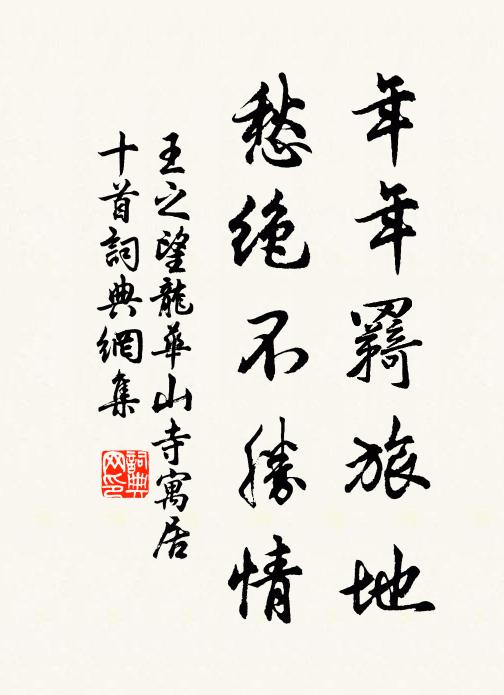 年年羇旅地
愁絶不勝情
王之望龍華山寺寓居
十首詞典網集
詞典网印